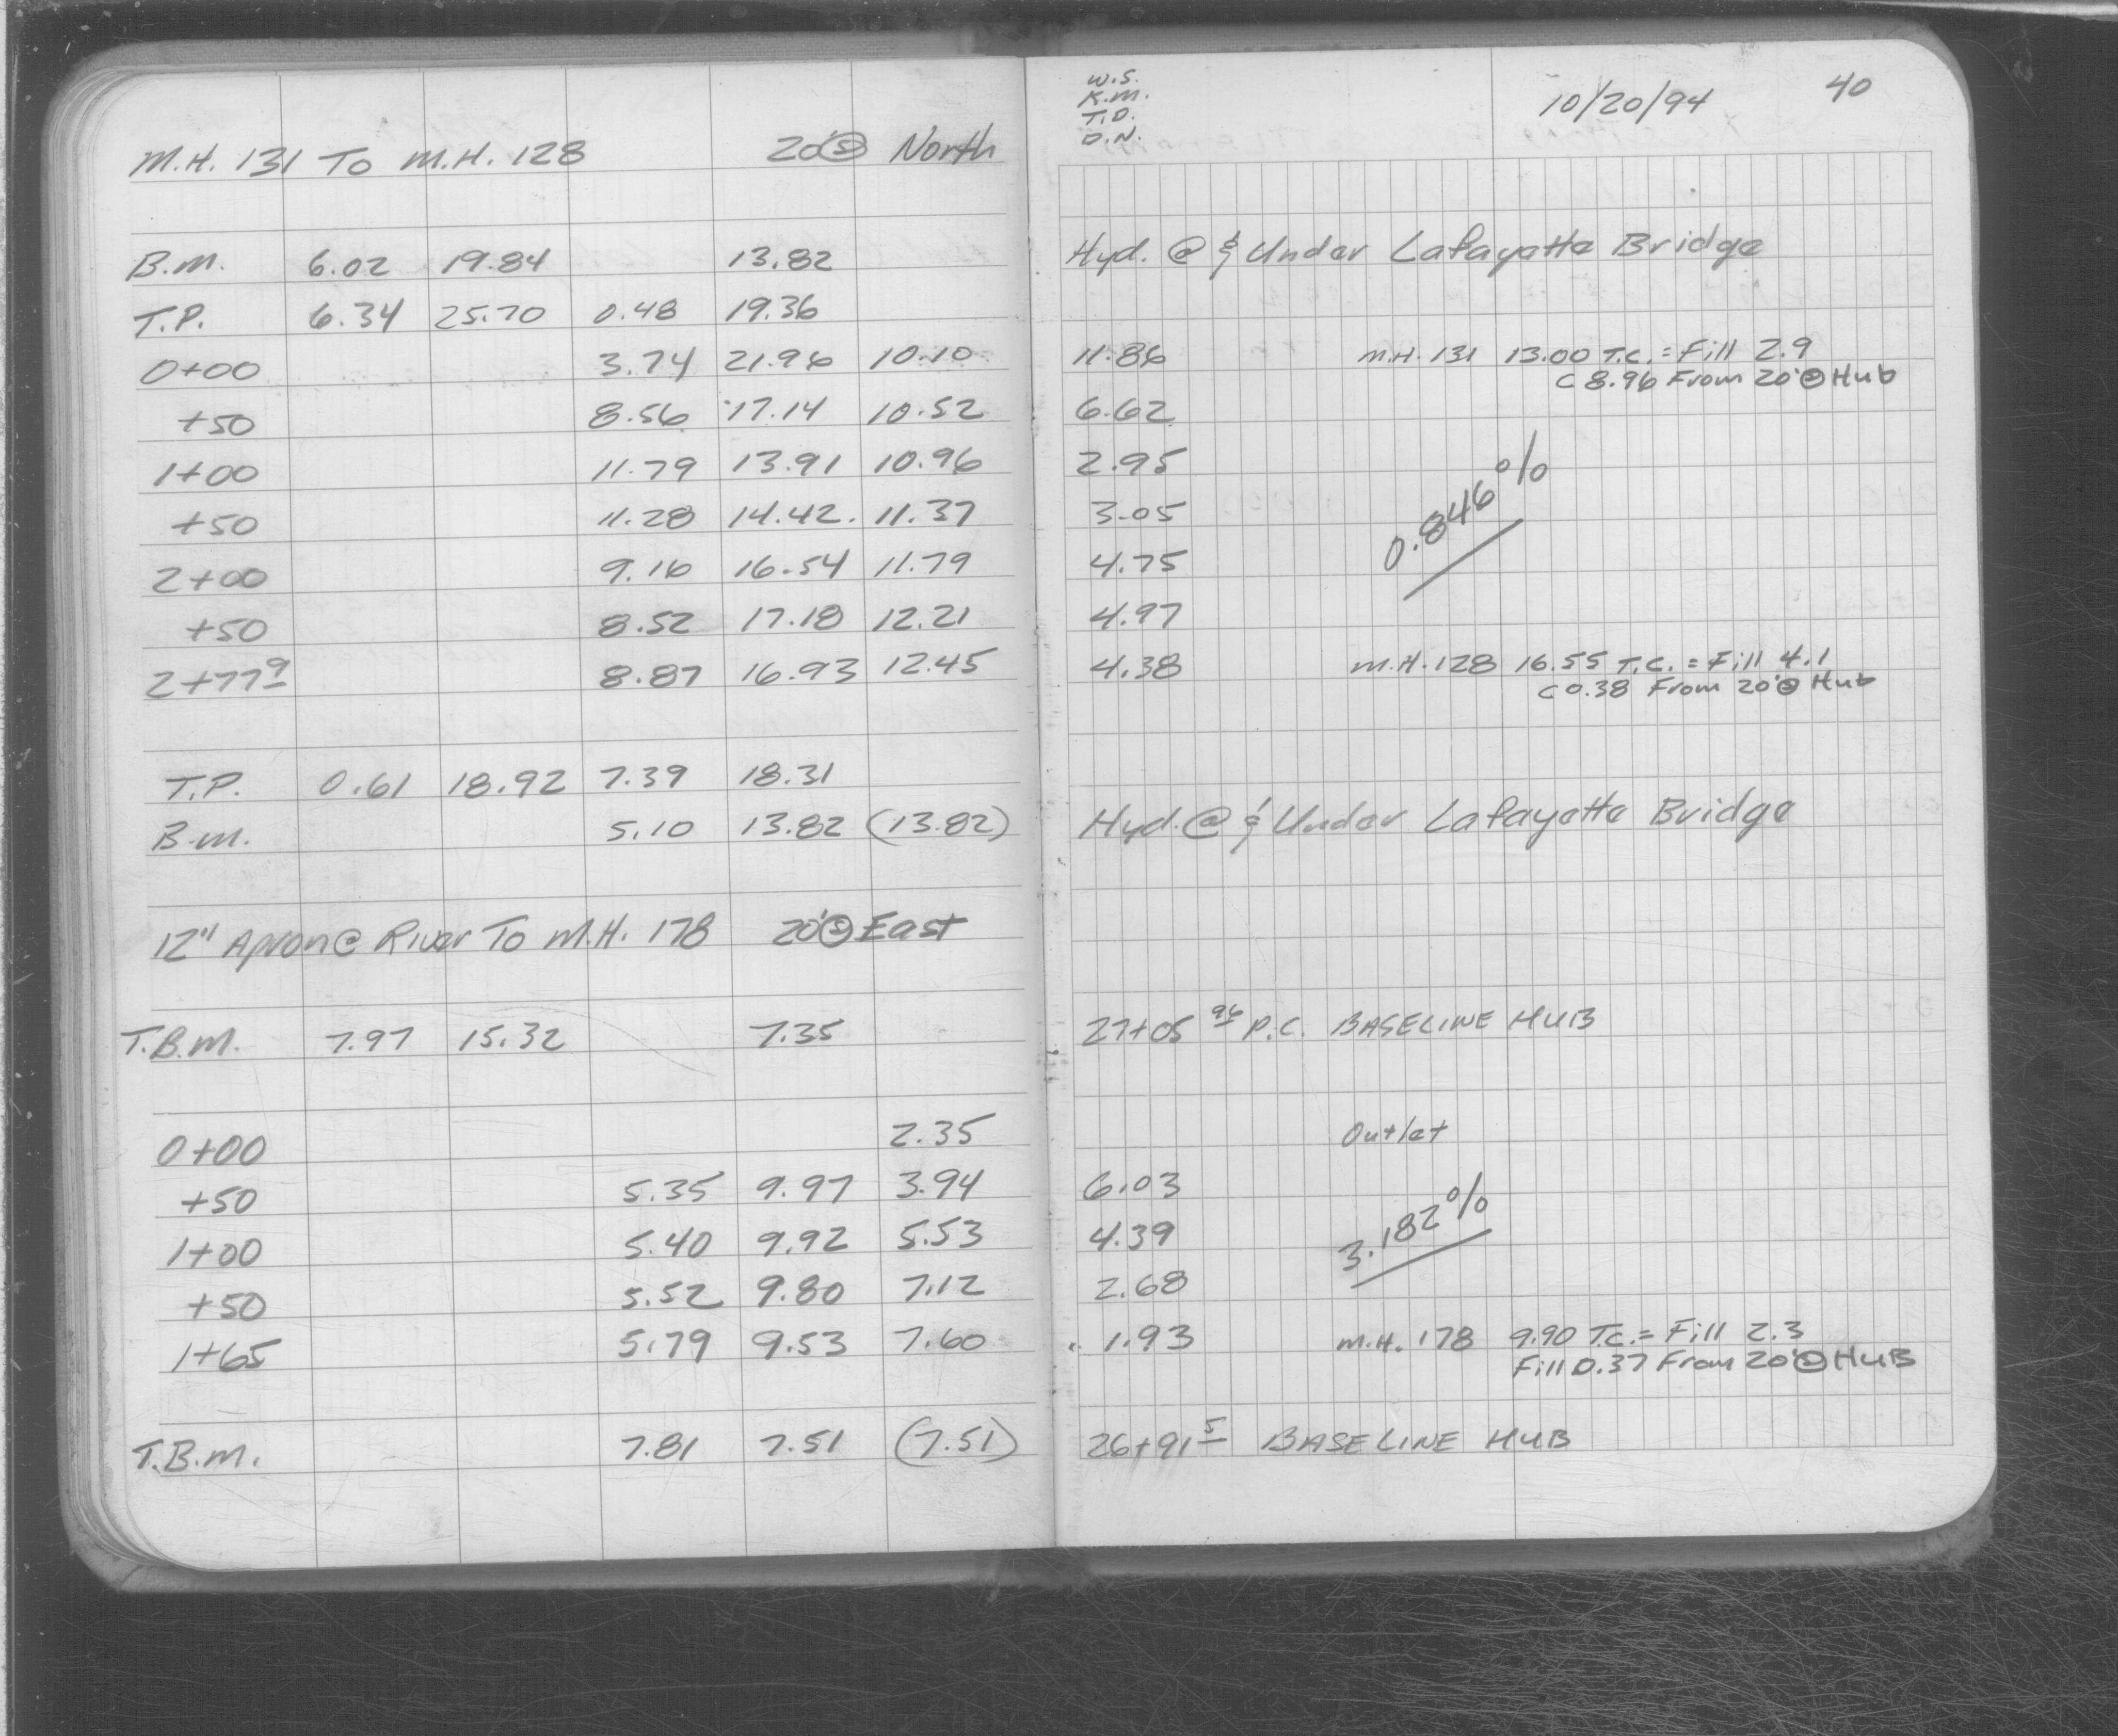 M.H. 131 To M.H. 128 20' Ⓢ North
B.M. 6.02 19.84 13.82
T.P. 6.34 25.70 0.48 19.36
0+00 3.74 21.96 10.10
+50 8.56 17.14 10.52
1+00 11.79 13.91 10.96
+50 11.28 14.42. 11.37
2+00 9.16 16.54 11.79
+50 8.52 17.18 12.21
2+77 9 8.87 16.93 12.45
T.P. 0.61 18.92 7.39 18.31
B.M. 5.10 13.82 (13.82)
12" Apron @ River To M.H. 178 20' Ⓢ East
T.B.M. 7.97 15.32 7.35
0+00 2.35
+50 5.35 9.97 3.94
1+00 5.40 9.92 5.53
+50 5.52 9.80 7.12
1+65 5.79 9.53 7.60
T.B.M. 7.81 7.51 (7.51)
W.S.
K.M.
T.D.
D.N.
10/20/94 40
Hyd. @ ⅊ Under Lafayette Bridge
11.86 M.H. 131 13.00 T.C. = Fill 2.9
C 8.96 From 20' Ⓢ Hub
6.62
2.95
0.846%
3.05
4.75
4.97
4.38 M.H. 128 16.55 T.C. = Fill 4.1
C 0.38 From 20' Ⓢ Hub
Hyd. @ ⅊ Under Lafayette Bridge
27+05 96 P.C. BASELINE HUB
Outlet
6.03
4.39
3.182%
2.68
1.93 M.H. 178 9.90 T.C. = Fill 2.3
Fill 0.37 From 20' Ⓢ HUB
26+91 5 BASELINE HUB